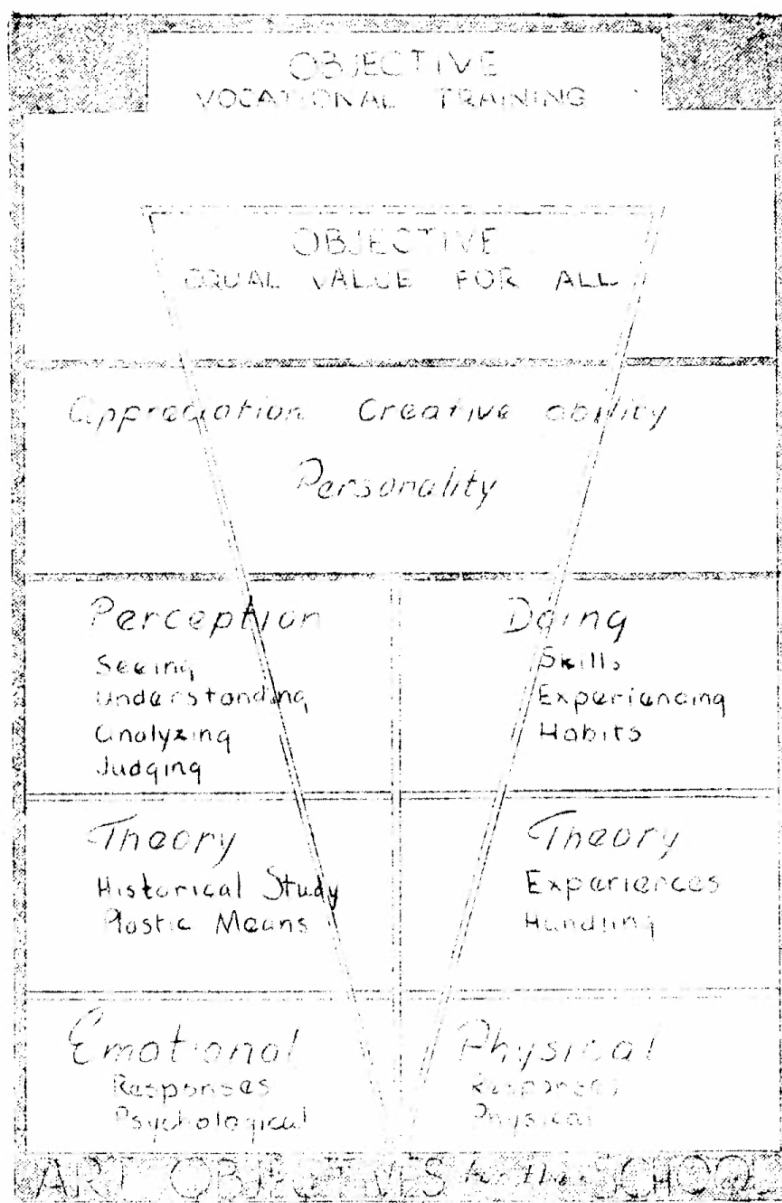 OBJECTIVE
VOCATIONAL TRAINING
OBJECTIVE
EQUAL VALUE FOR ALL
Appreciation Creative ability
Personality
Perception
Seeing
Understanding
Analyzing
Judging
Doing
Skills
Experiencing
Habits
Theory
Historical Study
Plastic Means
Theory
Experiences
Handling
Emotional
Responses
Psychological
Physical
Responses
Physical
ART OBJECTIVES for the SCHOOL